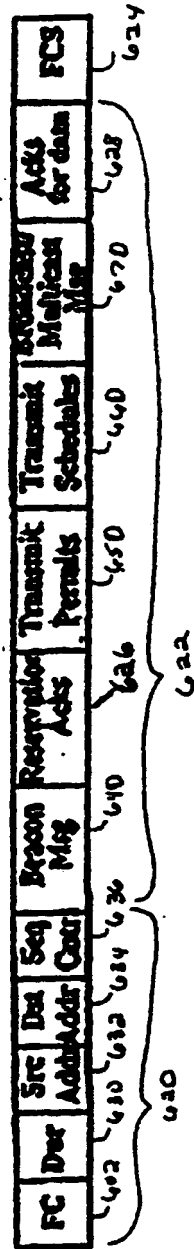 FC
Dur
Src
Addr
Dst
Addr
Seq
Cntr
Beacon
Msg
Reservation
Acks
Transmit
Permits
Transmit
Schedules
Multicast
Msg
Acks
for data
FCS
602
630
632
634
636
640
626
650
660
670
628
624
620
622